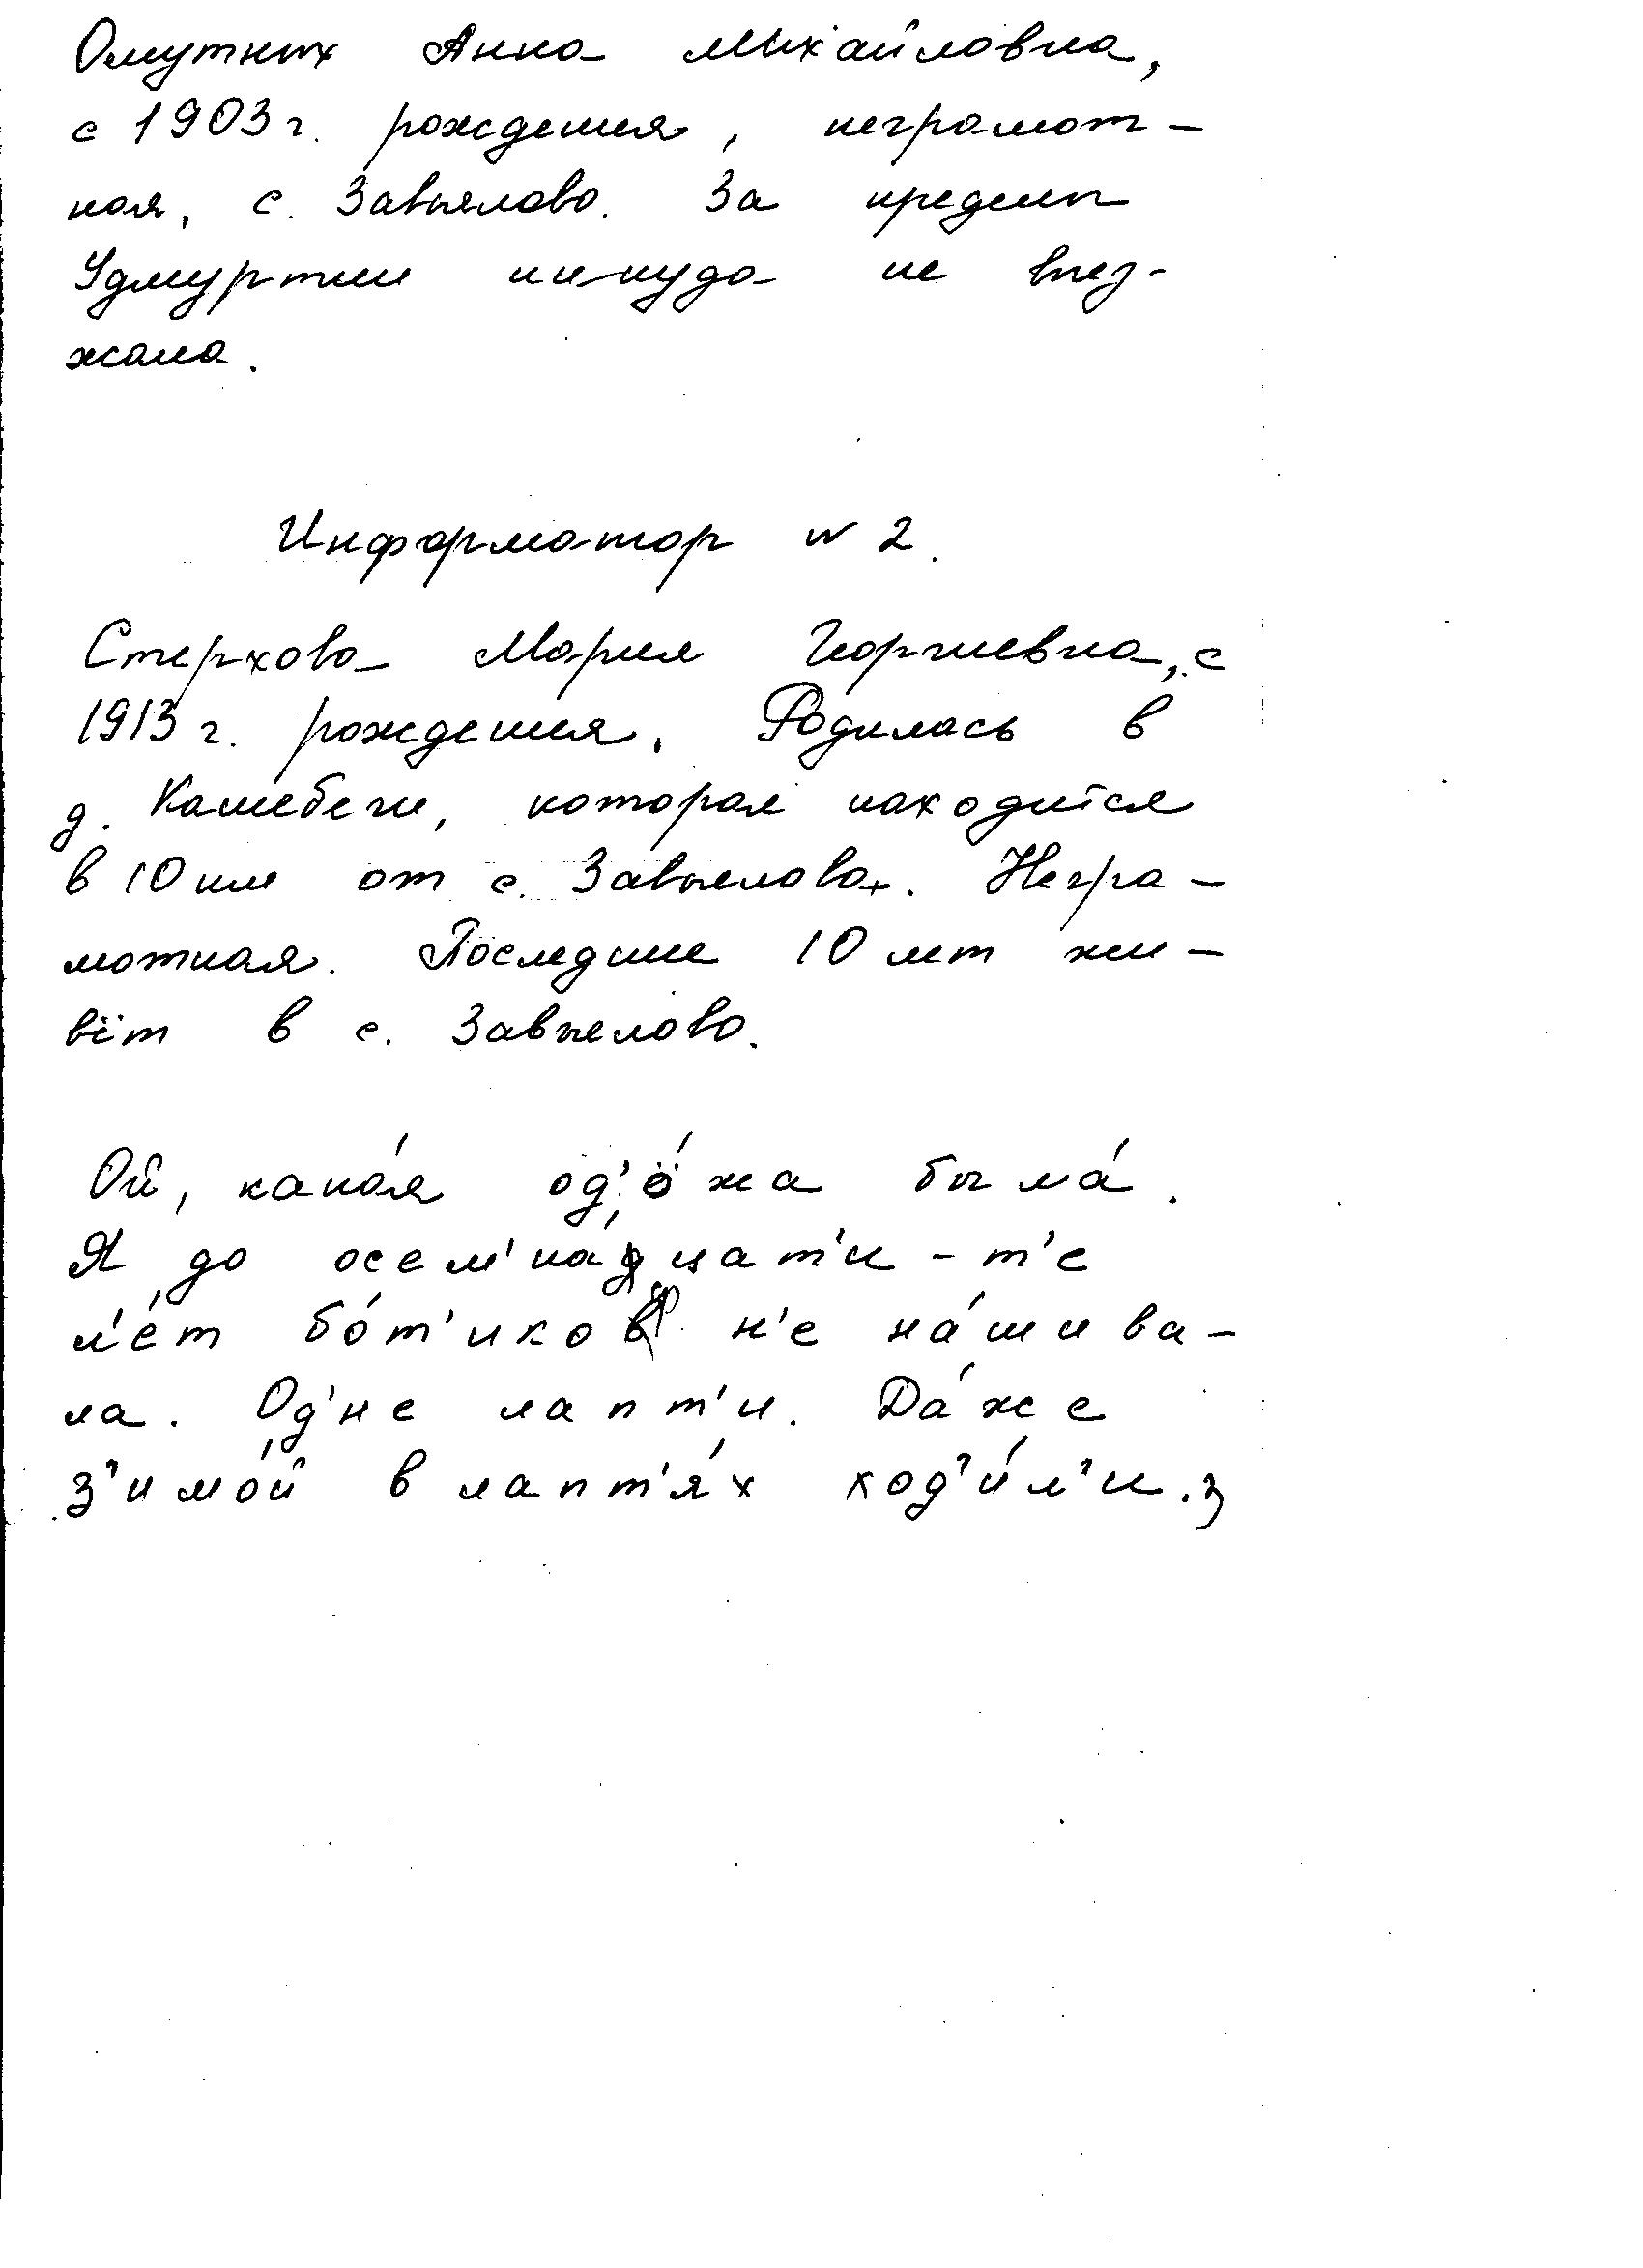 Омутных Анна Михайловна,
с 1903 г. рождения, неграмот-
ная, с. Завьялово. За пределы
Удмуртии никуда не выез-
жала.
Информатор № 2.
Стерхова Мария Георгиевна, с
1913 г. рождения. Родилась в
д. Кашебеги, которая находится
в 10 км от с. Завьялова. Негра-
мотная. Последние 10 лет жи-
вёт в с. Завьялово.
Ой, кака́я од'о́жа была́.
Я до осем'на́цат'и - т'е
л'е́т бо́т'иков н'е на́шива-
ла. Од'не лапт'и. Да́же
з'имо́й в лапт'я́х ход'и́л'и.